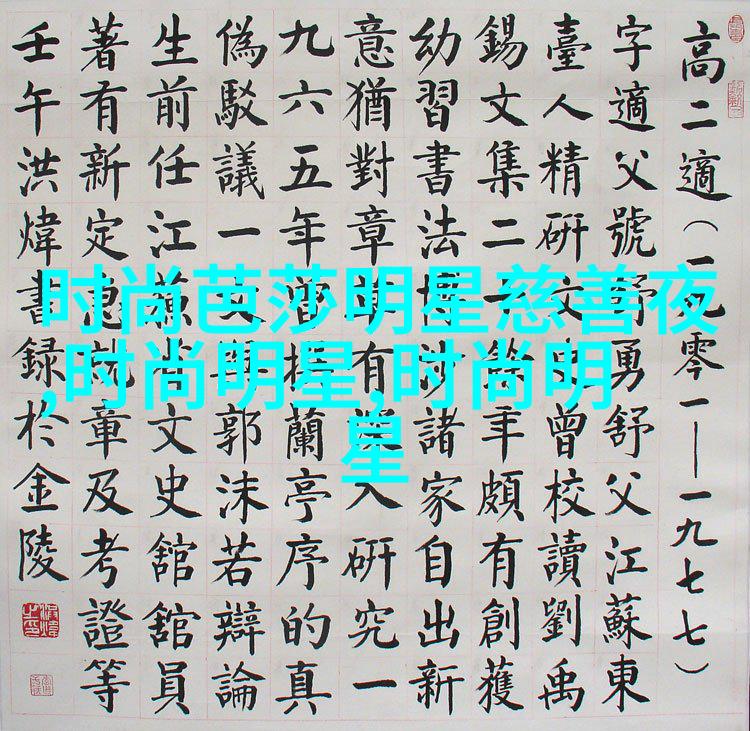 高二適（一九零一—一九七七）
字適父號野勇舒父江蘇東
臺人精研文史曾校讀劉禹
錫文集二十餘年頗有創獲
幼習書法博涉諸家自出新
意猶對章草有深入研究一
九六五年曾撰蘭亭序的真
偽駁議一文與郭沫若辯論
生前任江蘇省文史舘舘員
著有新定急就章及考證等
壬午洪煒書錄於金陵
时尚芭莎明星慈善夜
,时尚明星,时尚明
星